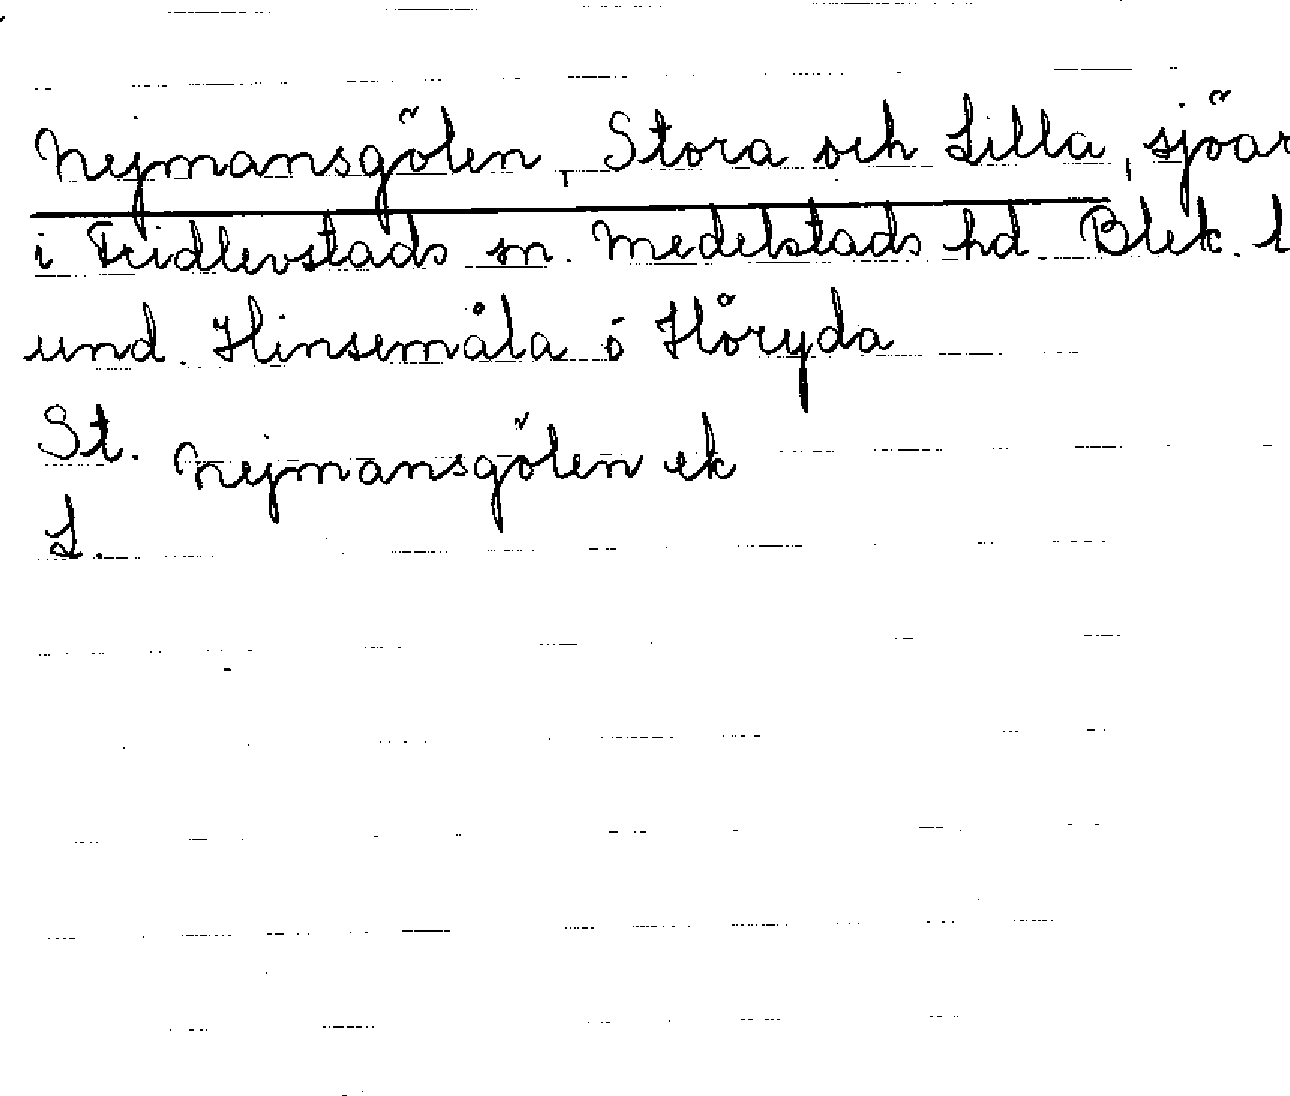 Nejmansgölen, Stora och Lilla, sjöar
i Fridlevstads sn. Medelstads hd. Blek. l
und. Hinsemåla o Håryda
St. Nejmansgölen ek
L.